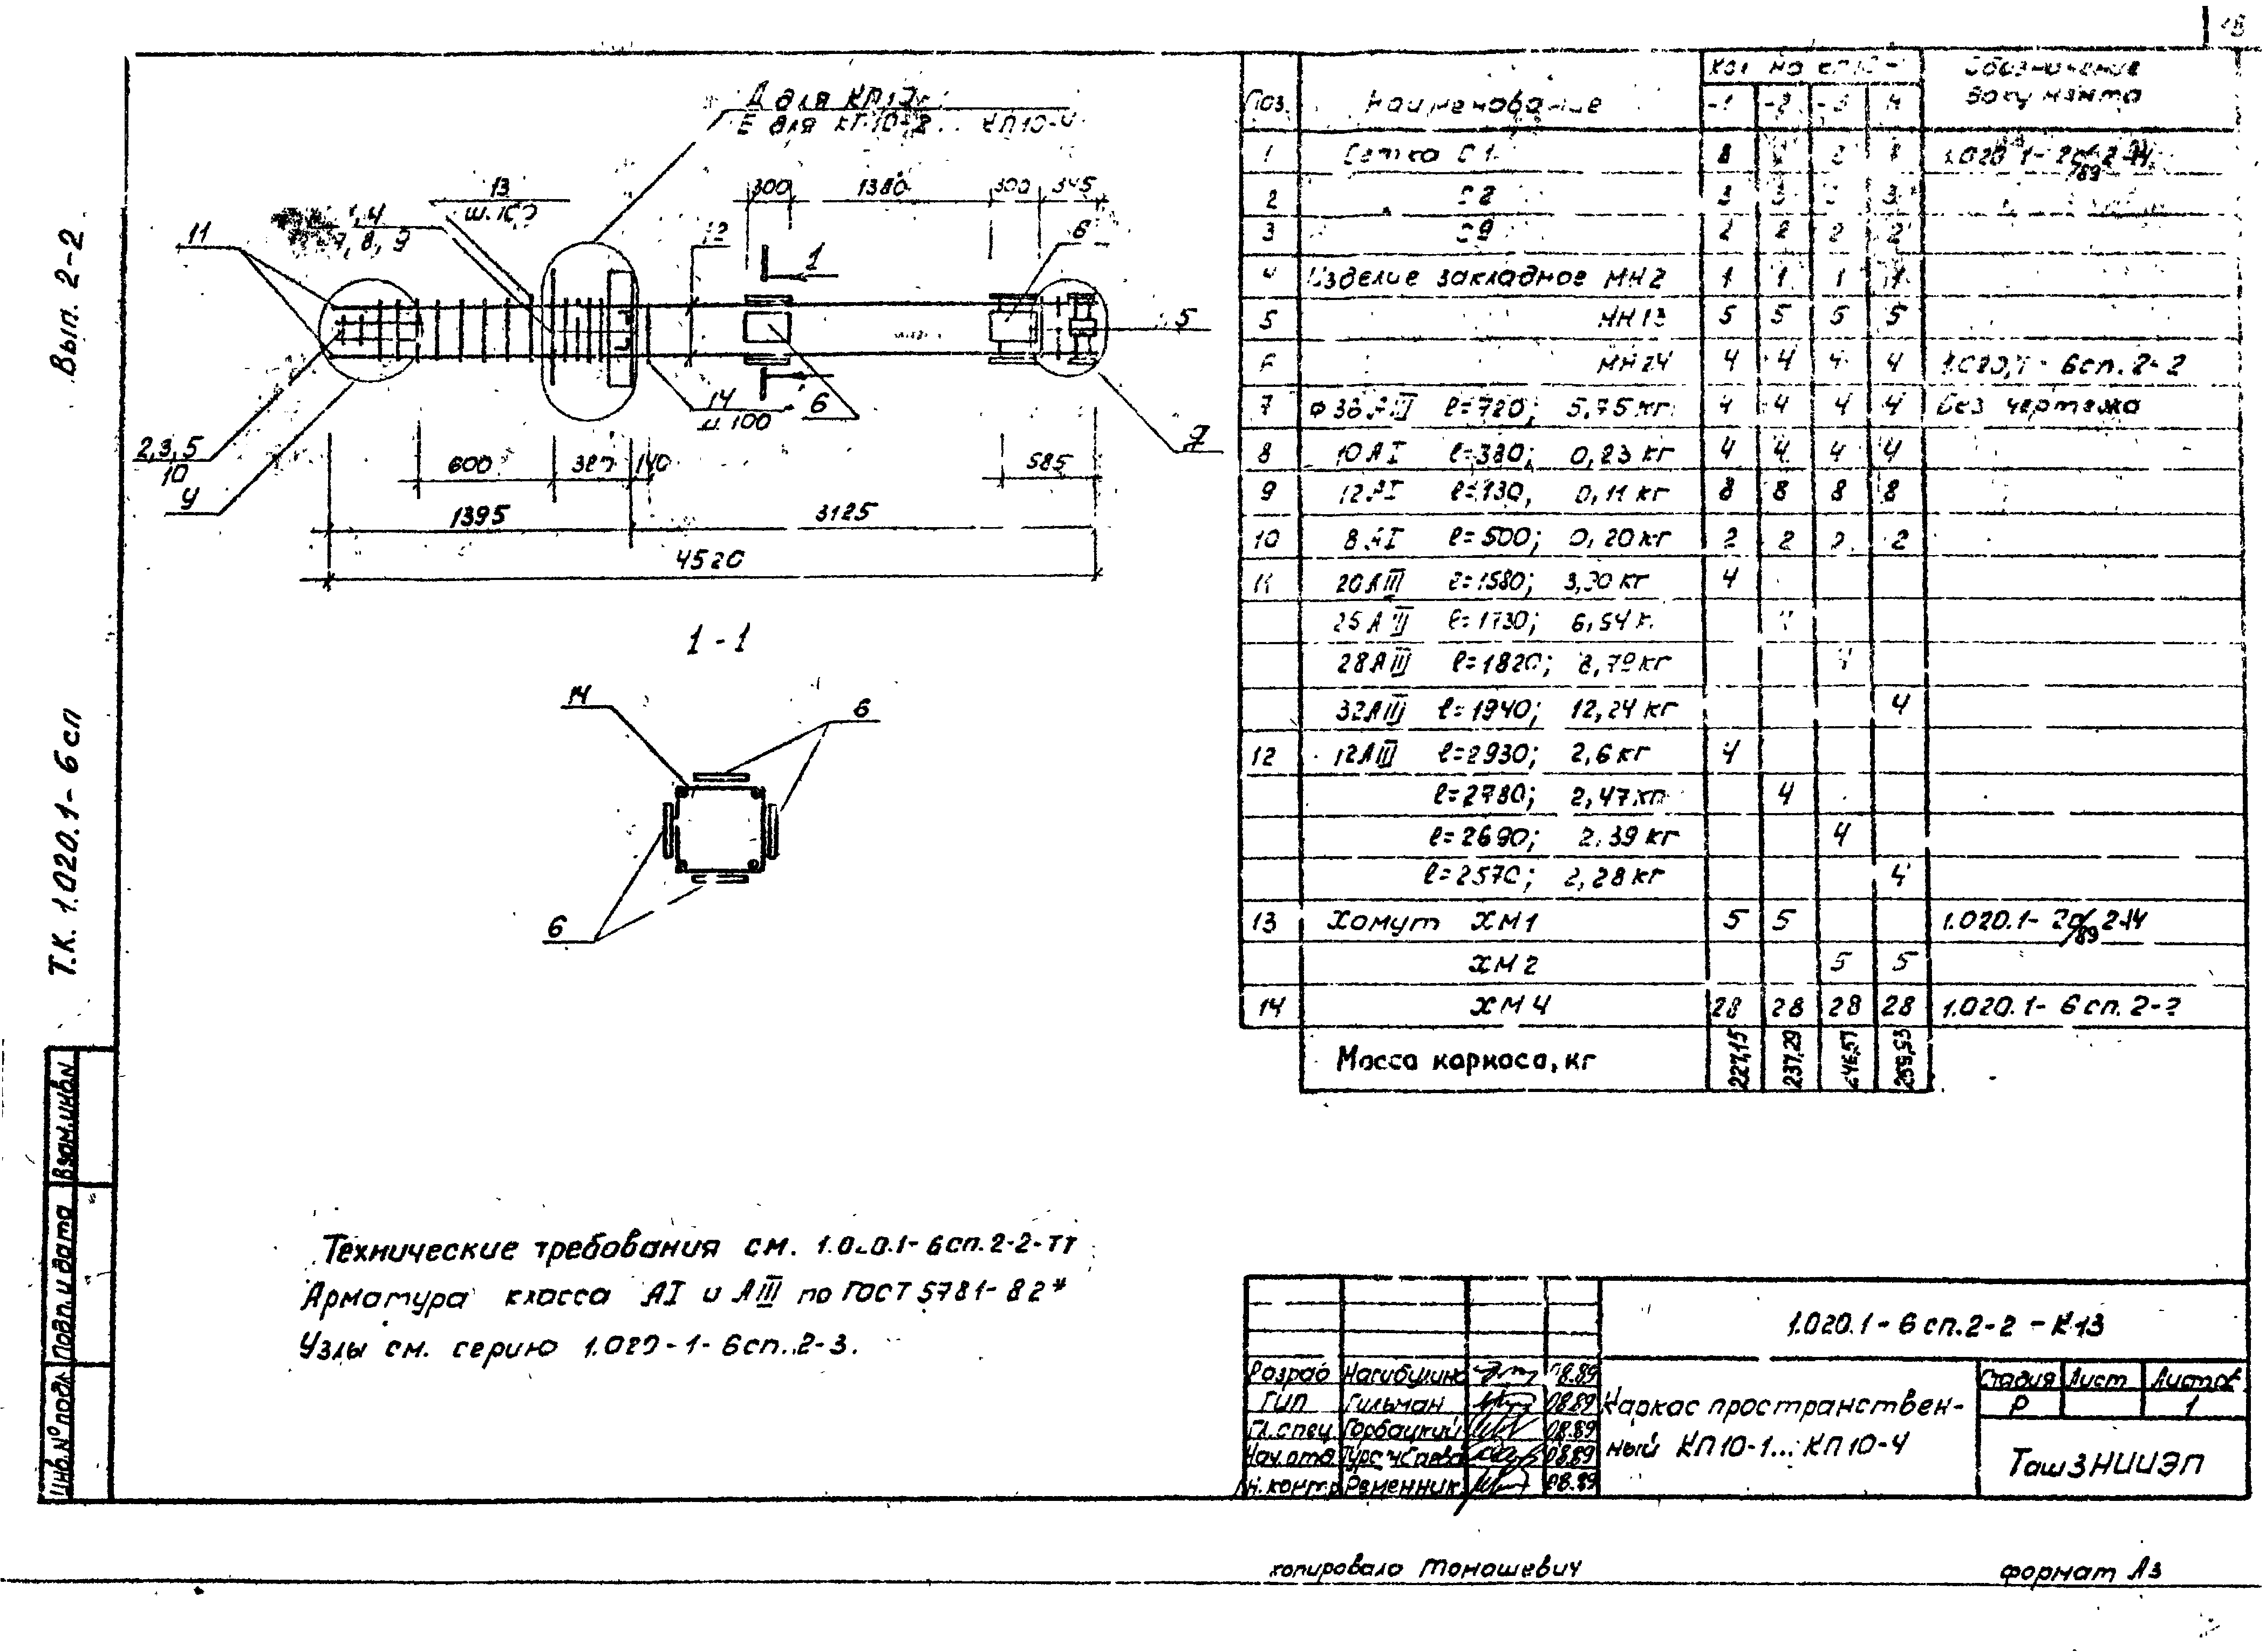 Вып. 2-2
Т.К. 1.020.1-6сп
Взам.инв.N
Подп. и дата
Инв.N°подл.
Д для
Е для КП10-2... КП10-4
13
11
7, 8, 9
300
1380
300
345
12
1
6
5
14
ш.100
6
7
2,3,5
10
У
600
140
585
1395
3125
4520
1-1
14
6
6
Поз. Наименование -1 -2 -3
документа
1 Сетка С1 8
2 3 3 3
3 2 2 2 2
4 Изделие закладное МН2 1 1 1 1
5 МН13 5 5 5 5
6 МН24 4 4 4 4 1.020.1- 6сп.2-2
7 ф36АIII ℓ=720; 5,75кг 4 4 4 4 Без чертежа
8 10АI ℓ=380; 0,23 кг 4 4 4 4
9 12АI ℓ=130; 0,11 кг 8 8 8 8
10 8АI ℓ=500; 0,20кг 2 2 2 2
11 20АIII ℓ=1580; 3,90 кг 4
25АIII ℓ=1730; 6,54
28АIII ℓ=1820; 8,79кг 4
32АIII ℓ=1940; 12,24 кг 4
12 12АIII ℓ=2930; 2,6 кг 4
ℓ=2780; 2,47 4
ℓ=2690; 2,39 кг 4
ℓ=2570; 2,28кг 4
13 Хомут ХМ1 5 5 1.020.1-
ХМ2 5 5
14 ХМ4 28 28 28 28 1.020.1- 6сп. 2-2
Масса каркаса, кг 227,15 237,29 246,57 259,93
Технические требования см. 1.020.1-6сп.2-2-ТТ
Арматура класса АI и АIII по ГОСТ 5781-82*
Узлы см. серию 1.020-1-6сп.2-3.
1.020.1-6сп.2-2-К13
Разраб 08.89
ГИП Гильман 08.89
Гл.спец Горбацкий 08.89
Нач.отд 08.89
Н.контр Ременник 08.89
Каркас пространствен-
ный КП10-1...КП10-4
Стадия Лист Листов
Р 1
ТашЗНИИЭП
копировала Томашевич
формат А3